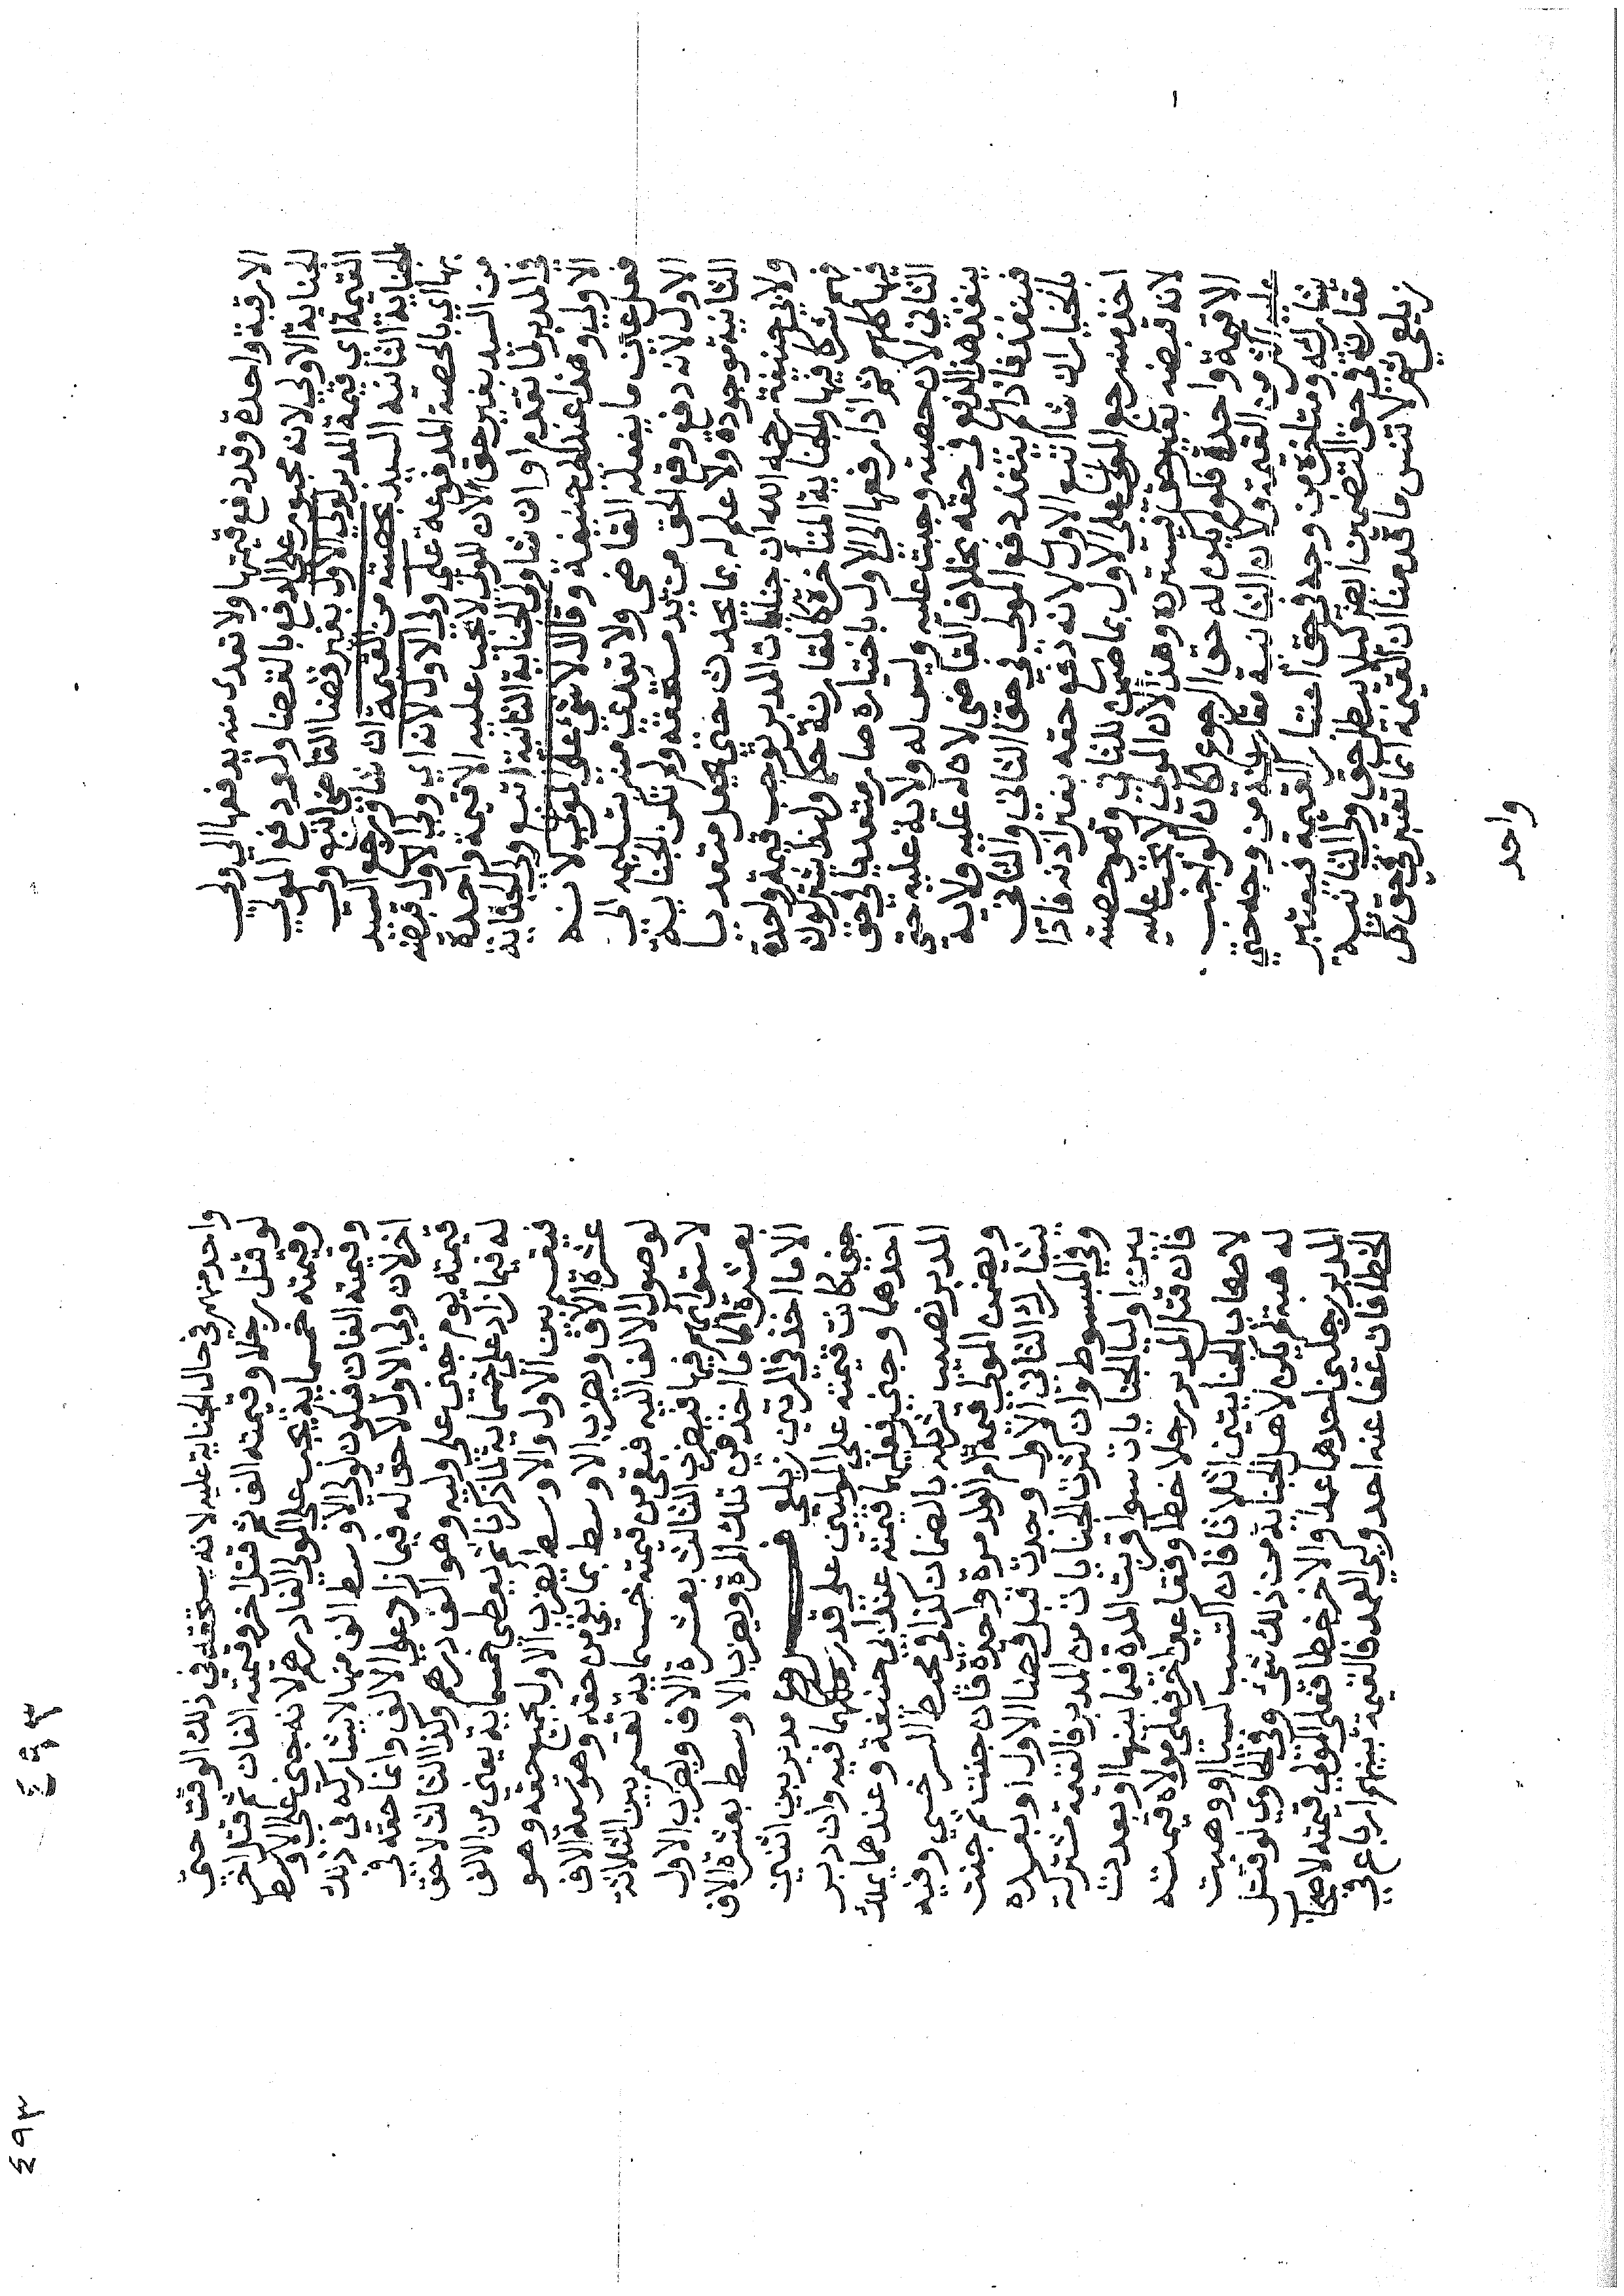 الا رقبة واحدة وقد دفع قيمتها ولا تعدى منه يدفعها الي ولي
الجناية الاولي لانه مجبور على الدفع بالقضا ولو دفع المولي
القيمة اي قيمة المدبر لولي الاول بغير قضا القاضي اتبع ولي
الجناية الثانية السيد بحصته من القيمة ان شا ورجع السيد
بها اي بالحصة المدفوعة على ولي الاول لانه اي ولي الاول قبضه
من السيد بغير حق لان المولي لا يجب عليه الا قيمة واحدة
في المدبر لما تقدم او ان شا ولي الجناية الثانية اتبع ولي الجناية
الاولي وهذا عند ابي حنيفة وقالا لا شي على المولي لانه
فعل عين ما يفعله القاضي ولا تعدي منه بتسليمه الي
الاول لانه دفع وقع الحق من يد مستحقه ولم تكن الجناية
الثانية موجودة ولا علم له بما يحدث حتي يجعل متعديا
ولابي حنيفة رحمه الله ان جنايات المدبر توجب قيمة واحدة
فهم شركا فيها والجناية المتأخرة كالمقارنة حكما ولهذا يشتركون
فيها كلهم ثم اذا دفعها الى الاول باختياره صار متعديا في حق
الثاني لان حصته وجبت عليه وليس له ولاية عليه حتي
ينفذ هذا الدفع في حقه بخلاف القاضي لان له عليه ولاية
فينفذ فاذا لم ينفذ دفع المولى في حق الثاني والثاني
بالخيار ان شا اتبع الاول لانه دفع حقه بغير اذنه فاذا
اخذ منه رجع المولي على الاول بما ضمن للثاني وهو حصته
لانه قبضه بغير حق فيسترده وهذا لان المولي لا يجب عليه
الا قيمة واحدة فلو لم يكن له حق الرجوع لكان الواجب
عليه اكثر من القيمة ولان الثانية مقارنة من وجه حتي
يشاركه ومتأخرة من وجه في حق اعتبار القيمة فيعتبر
مقارنة في حق التضمين ايضا كيلا يبطل حق ولي الثانية
زيلعي ثم لا تنس ما قدمنا ان القيمة انما تعتبر في حق كل
واحد
واحد منهم في حال الجناية عليه لانه يستحقه في ذلك الوقت حتي
لو قتل رجلا وقيمته الف ثم قتل اخر وقيمته الفان ثم قتل اخر
وقيمته خمسماية يجب على المولي الفا درهم لانه جنى على الاوسط
وقيمته الفان فيكون لولي الاوسط الف منها لا يشاركه في ذلك
اخر لان ولي الاول لا حق له فيما زاد على الالف وانما حقه في
قيمته يوم جنى على وليه وهو الف درهم وكذا الثالث لا حق
له فيما زاد على خمسماية لما ذكرنا ثم يعطي خمسماية يعني من الالف
فيقسم بين الاول والاوسط يضرب الاول بجميع حقه وهو
عشرة الاف ويضرب الاوسط بما بقي من حقه وهو تسعة الاف
لوصول الالف اليه فبقي من قيمته خمسماية تقسم بين الثلاثة
لاستوائهم فيها فيضرب الثالث بعشرة الاف ويضرب الاول
بعشرة الا ما اخذ من تلك المرة ويضرب الاوسط بعشرة الاف
الا ما اخذ في المرتين زيلعي فروع مدبر بين اثنين
جنى كانت قيمته على الموليين على قدر ملكهما فيه وان دبر
احدهما وجنى فعليهما قيمته عند ابي حنيفة وعندهما يملك
المدبر نصيب شريكه بالضمان كذا في محيط السرخسي وفيه
ويضمن المولي قيمة ام الولد مرة واحدة فان جنت ثم جنت
يشارك الثاني الاول وحدث قبل قضا الاول او بعده
وفي المبسوط وان كثرت الجنايات من المدبر فالقيمة مشتركة
بين اوليا الجنايات سوا قربت المدة فيما بينها او بعدت
فان قتل المدبر رجلا خطا وفقا عين اخر فعلى مولاه قيمته
لاصحاب الجنايتين اثلاثا فان اكتسب كسبا او وهبت
له هبة لم يكن لاهل الجناية من ذلك شي وفي الحاوي لو قتل
المدبر رجلين احدهما عمدا والاخر خطا فعلى المولي قيمته لاصحاب
الخطا فان عفا عنه احد وليي العمد فالقيمة بينهم ارباع في
٤٩٣
٤٩٣